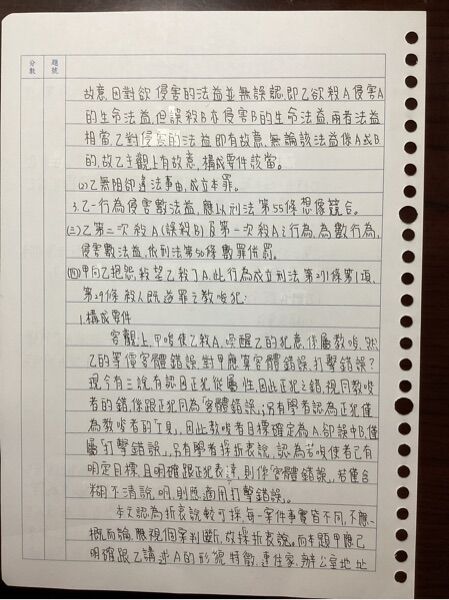 題號
分數
故意,因對欲侵害的法益並無誤認,即乙欲殺A侵害A
的生命法益,但誤殺B亦侵害B的生命法益,兩者法益
相當,乙對侵害的法益即有故意,無論該法益係A或B
的,故乙主觀上有故意,構成要件該當。
⑵乙無阻卻違法事由,成立本罪。
3.乙一行為侵害數法益,應以刑法第55條想像競合。
㈢乙第二次殺A(誤殺B)及第一次殺A之行為,為數行為,
侵害數法益,依刑法第50條數罪併罰。
㈣甲向乙抱怨殺望乙殺了A,此行為成立刑法第271條第1項、
第29條殺人既遂罪之教唆犯:
1.構成要件
客觀上,甲唆使乙殺A,喚醒乙的犯意,係屬教唆,然
乙的等價客體錯誤,對甲應算客體錯誤、打擊錯誤?
現今有三說,有認因正犯從屬性,因此正犯之錯,視同教唆
者的錯,係跟正犯同為「客體錯誤」;另有學者認為正犯僅
為教唆者的工具,因此教唆者目標確定為A,卻誤中B,僅
屬「打擊錯誤」,另有學者採折衷說,認為若唆使者已有
明定目標,且明確跟正犯表達,則係「客體錯誤」,若僅含
糊不清說明,則應適用「打擊錯誤」。
本文認為折衷說較可採,每一案件事實皆不同,不應一
概而論,應視個案判斷,故採折衷說。而本題甲應已
明確跟乙講述A的形貌特徵,連住家、辦公室地址